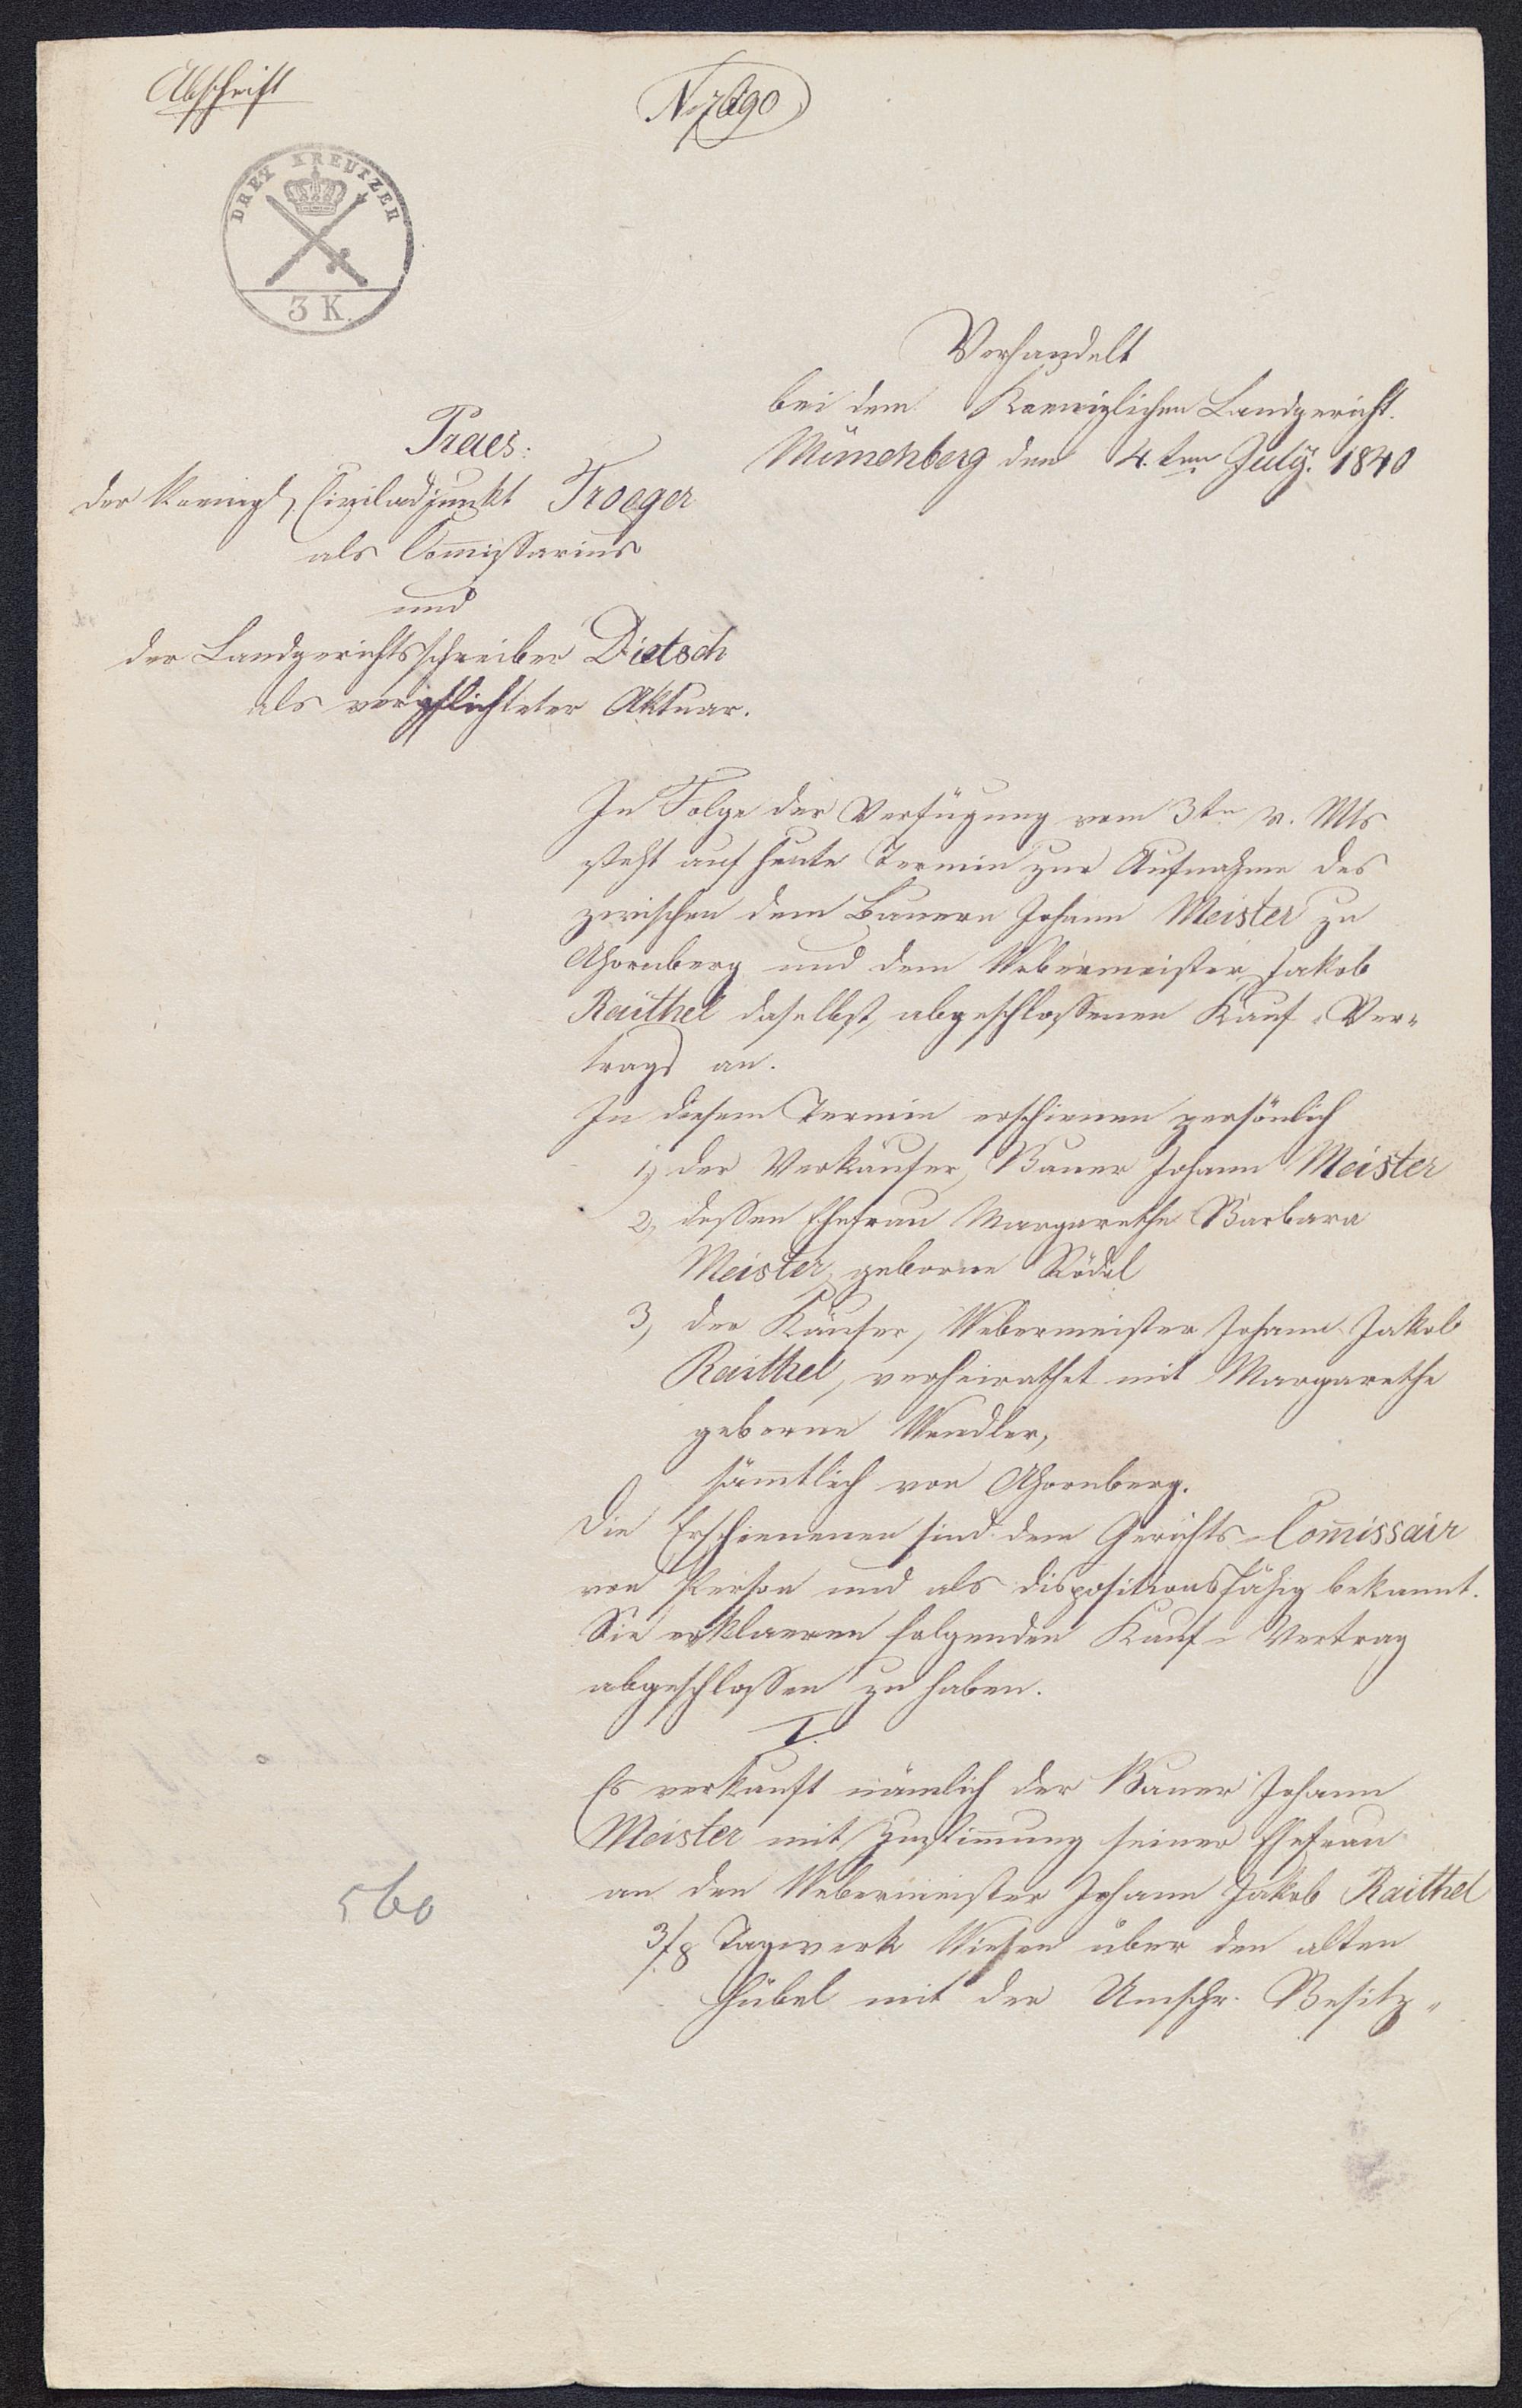 Abschrift
DREY KREUTZER
3 K.
Verhandelt
bei dem Koeniglichen Landgericht.
Münchberg den 4.ten July. 1840
Praes:
der Koenigl. Civiladjunkt Troeger
als Com̄issarius
und
der Landgerichtsschreiber Dietsch
als verpflichteter Aktuar.
In Folge der Verfügung vom 3ten v. Mts
steht auf heute Termin zur Aufnahme des
zwischen dem Bauern Johann Meister zu
Ahornberg und dem Webermeister Jakob
Raithel daselbst, abgeschlossenen Kauf-Ver-
trags an.
In diesem Termin erschienen persönlich
1, der Verkäufer, Bauer Johann Meister
2, dessen Ehefrau Margarethe Barbara
Meister, geborne Rödel
3, der Käufer, Webermeister Johann Jakob
Raithel, verheirathet mit Margarethe
geborne Wendler,
säm̄tlich von Ahornberg.
Die Erschienenen sind dem Gerichts-Com̄issair
von Person und als dispositionsfähig bekannt.
Sie erklaeren folgenden Kauf-Vertrag
abgeschlossen zu haben.
I.
Es verkauft nämlich der Bauer Johann
Meister mit Zustim̄ung seiner Ehefrau
an den Webermeister Johann Jakob Raithel
3/8 Tagwerk Wiesen über den alten
Hübel mit der Umschr. Besitz-
560